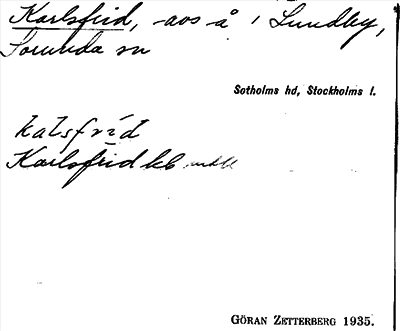 Karlsfrid, -aos å i Lundby,
Sorunda sn
Sotholms hd, Stockholms l.
kalsfrid
Karlsfrid kb
GÖRAN ZETTERBERG 1935.